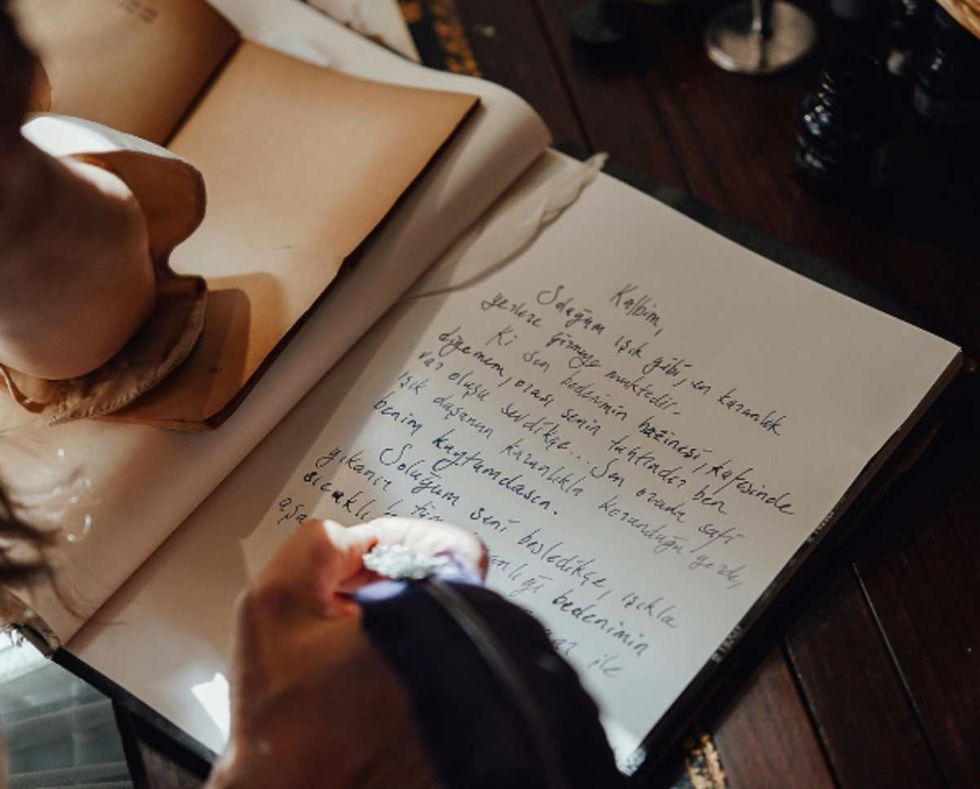 Kalbim,
Soluğum ışık gibi, en karanlık
yerlere girmeye muktedir.
Ki sen bedenimin hazinesi, kafesinde
diyemem, orası senin tahtındır ben
var oluşu sevdikçe... Sen orada safi
ışık düşünün karanlıkla korunduğu yerde,
benim kuytumdasın.
Soluğum seni besledikçe, ışıkla
yıkanır tüm bedenimin
sıcaklı
ile